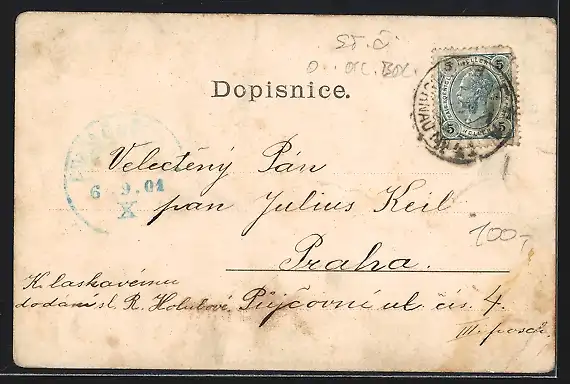 ST. Č.
Dopisnice.
5 5
5 5
6 9.01
X
Velectěný Pán
pan Julius Keil
Praha.
100,-
K laskavému
dodání sl. R. Holubové. Půjčovní ul. čís. 4.
III. posch.